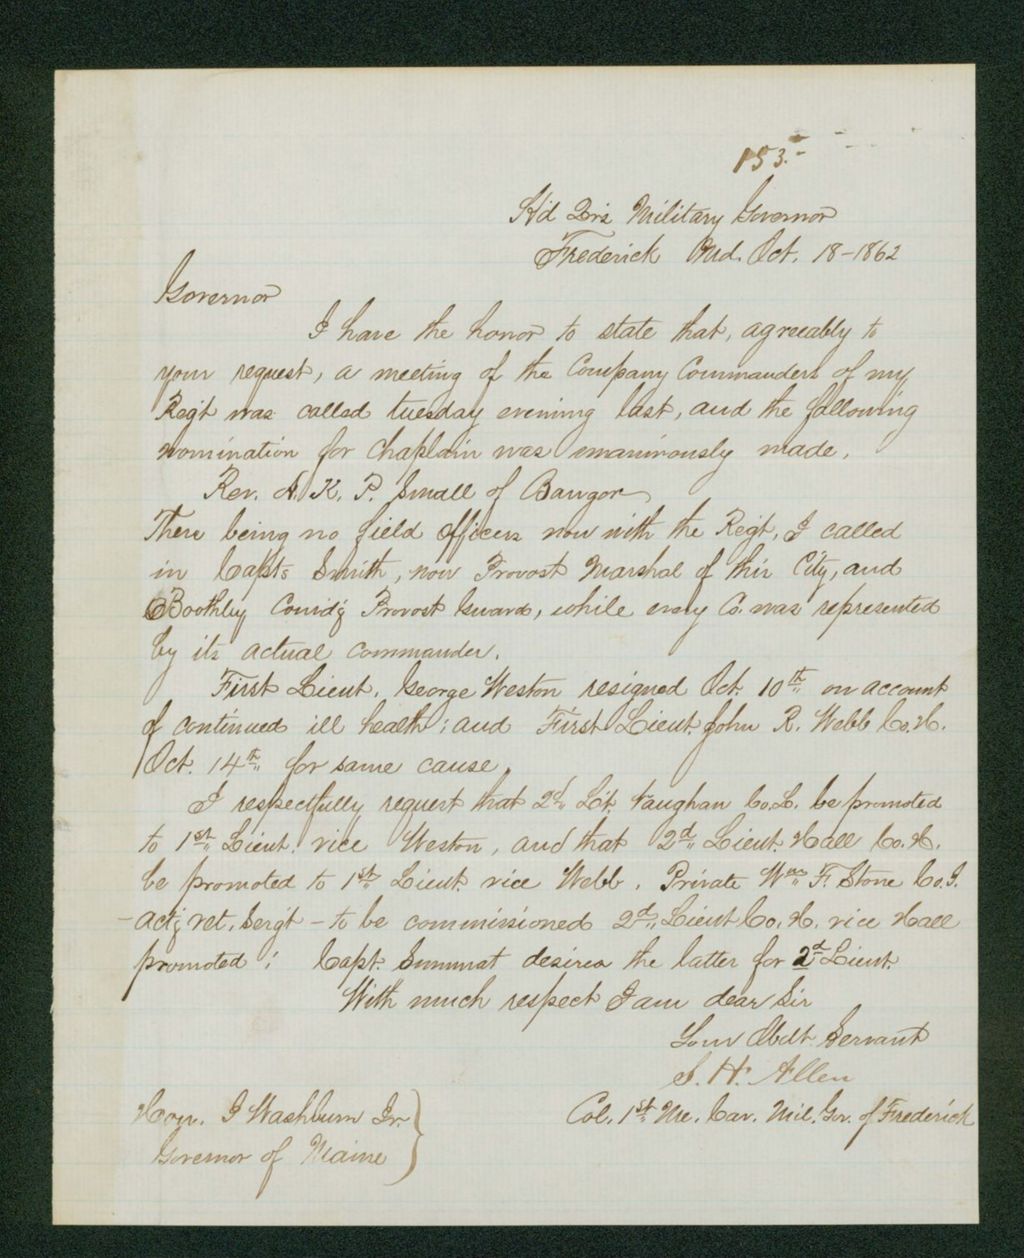 153.-
H'd Qrs Military Governor
Frederick Md. Oct. 18-1862
Governor
I have the honor to state that, agreeably to
your request, a meeting of the Company Commanders of my
Regt was called tuesday evening last, and the following
nomination for Chaplain was unanimously made,
Rev. A. K. P. Small of Bangor
There being no field officers now with the Regt, I called
in Capts Smith, now Provost Marshal of this City, and
Boothby Comd'g Provost Guard, while every Co. was represented
by its actual commander.
First Lieut. George Weston resigned Oct. 10th on account
of continued ill health; and First Lieut. John R. Webb Co. H.
Oct. 14th for same cause.
I respectfully request that 2d Lt. Vaughan Co. L. be promoted
to 1st Lieut. vice Weston, and that 2d Lieut. Hall Co. H.
be promoted to 1st Lieut vice Webb. Private Wm F. Stone Co. I.
- actg vet. Sergt - to be commissioned 2d Lieut Co. H. vice Hall
promoted; Capt. Summat desires the latter for 2d Lieut.
With much respect I am dear Sir
Your Obdt. Servant
S. H. Allen
Col. 1st Me. Cav. Mil. Gov. of Frederick
Hon. I Washburn Jr.
Governor of Maine